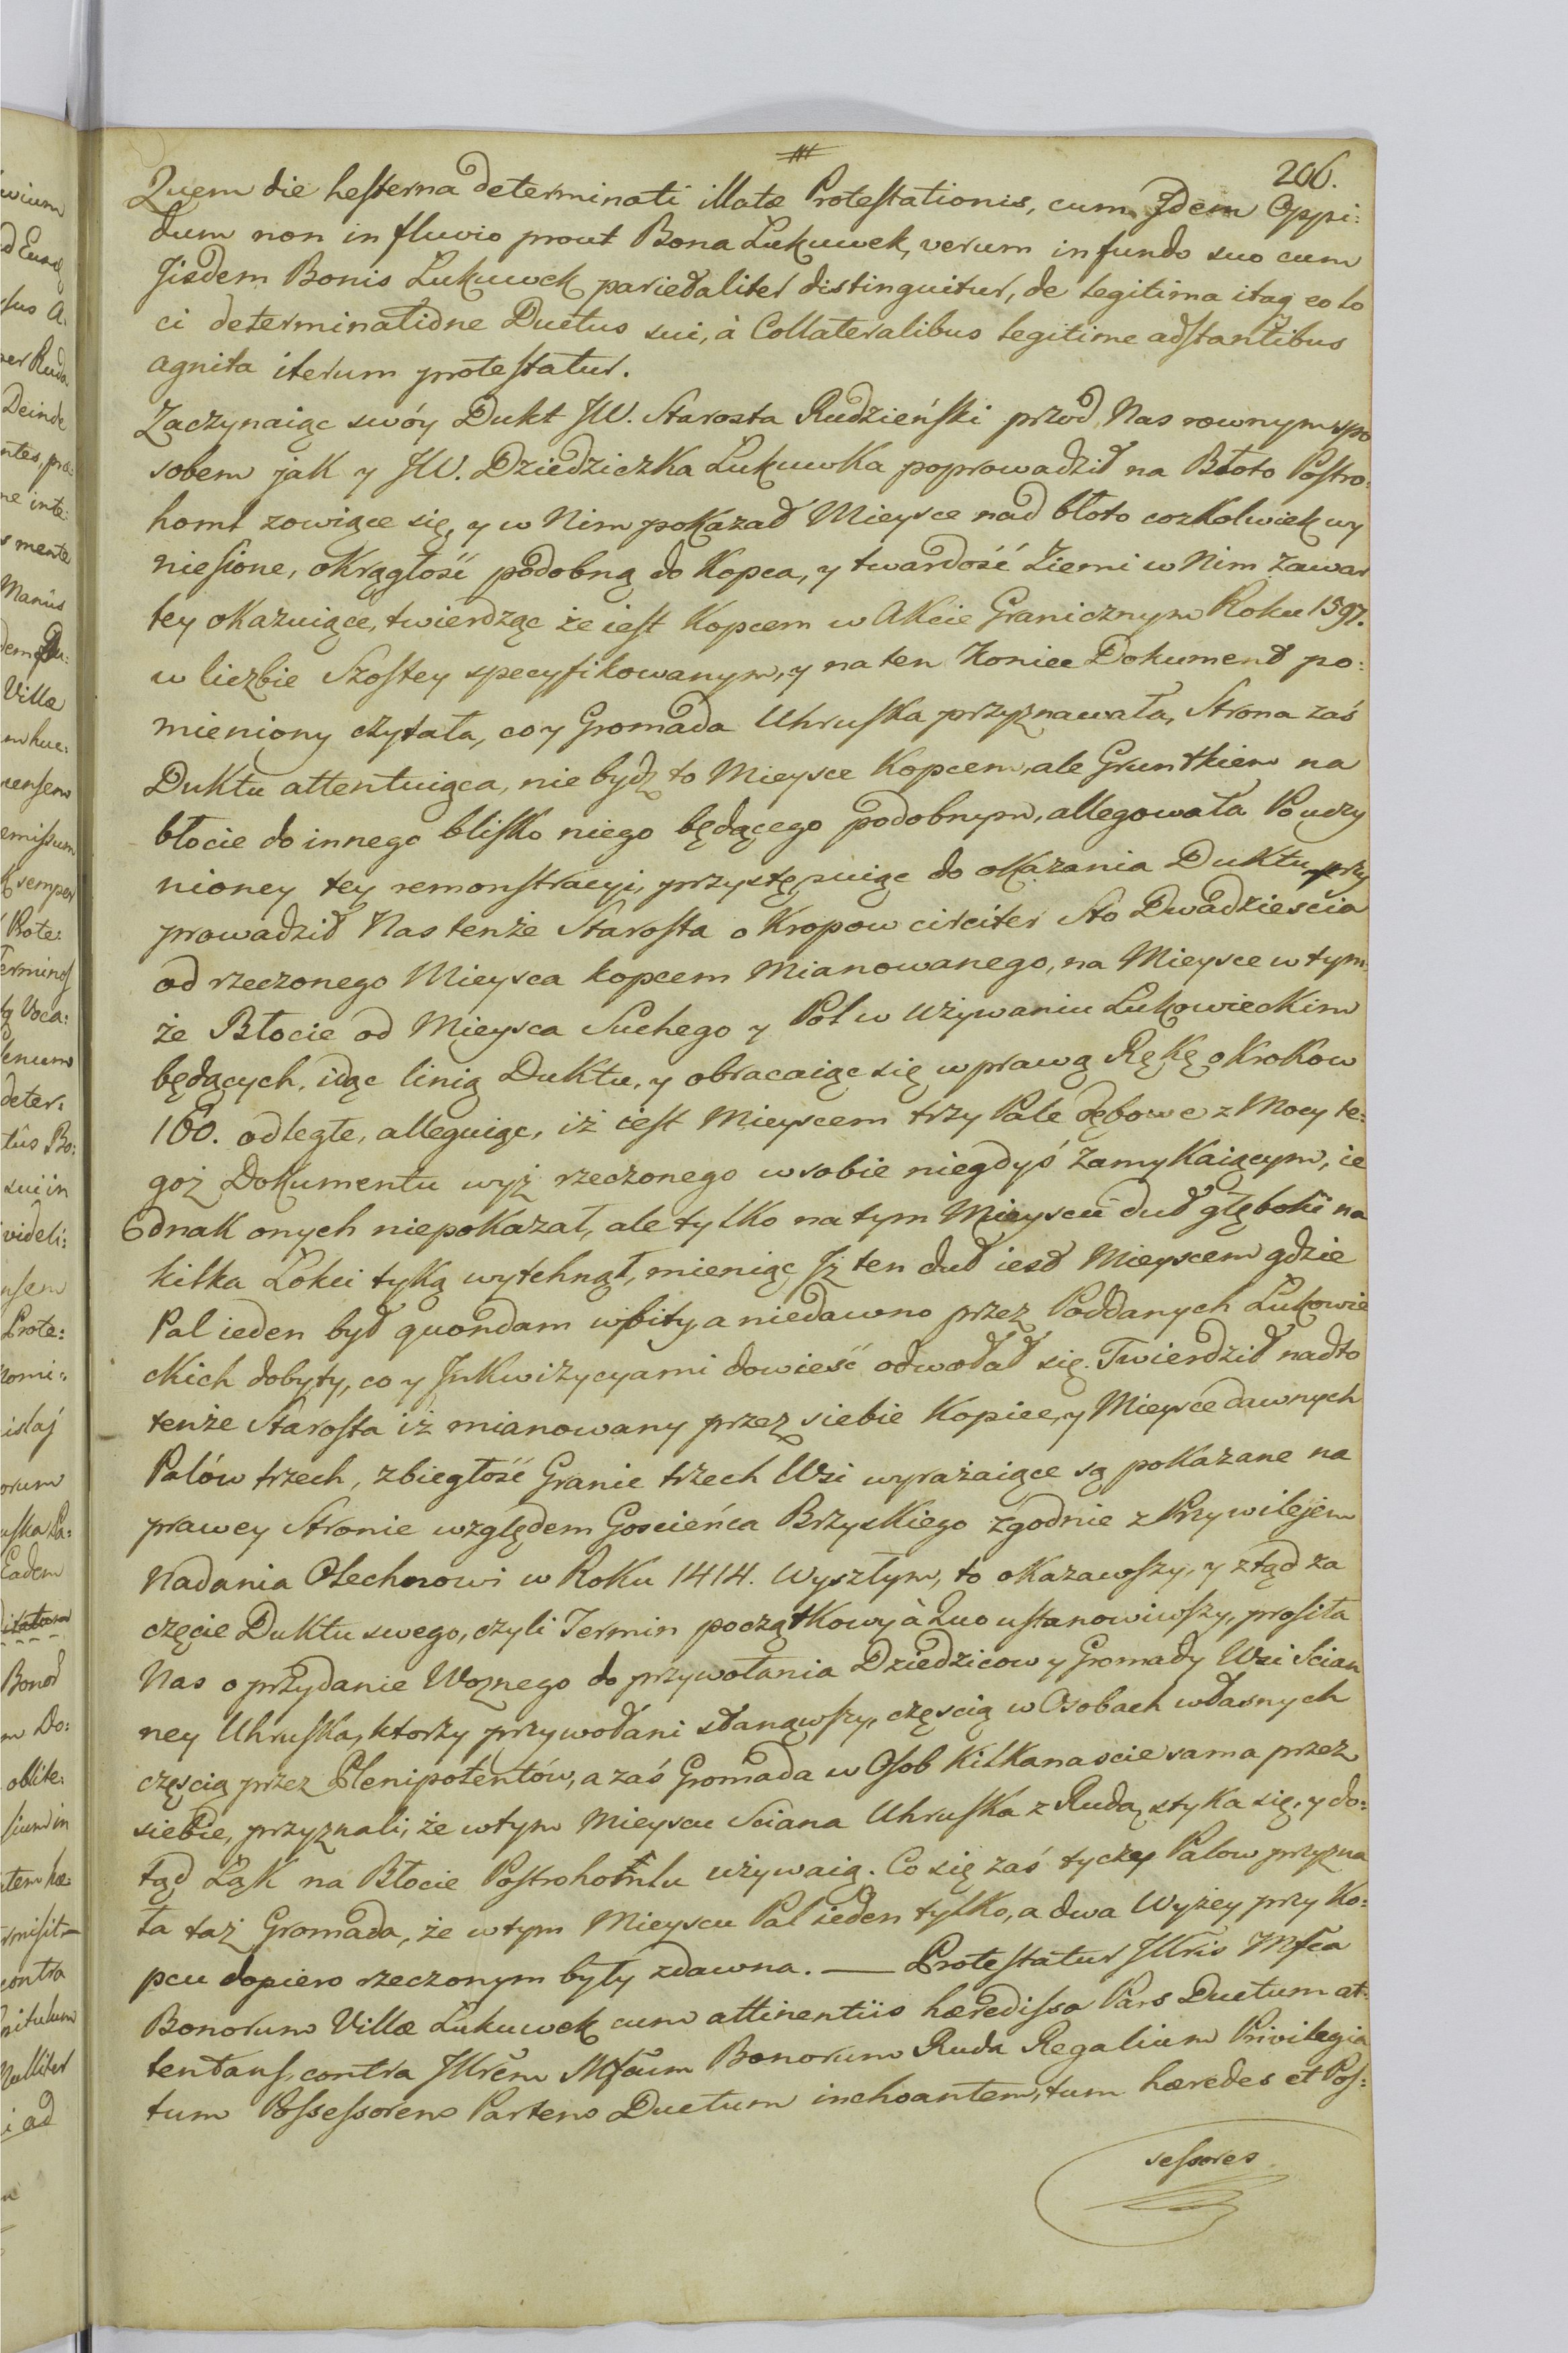 206.
Quem die hesterna determinati illatæ Protestationis, cum Idem Oppi:
dum non in fluvio prout Bona Lukuwek, verum in fundo suo cum
Jisdem Bonis Lukuwek parietaliter distinguitur, de legitima itaq eo lo
ci determinatione Ductus sui, à Collateralibus legitime adstantibus
agnita iterum protestatur.
Zaczynaiąc swóy Dukt JW. Starosta Rudzieński przed Nas rownym spo
sobem jak y JW. Dziedziczka Lukuwka poprowadził na Błoto Postro:
homl zowiące się, y w Nim pokazał Mieysce nad błoto cozkolwiek wy
niesione, okrągłość podobną do Kopca, y twardość Ziemi w Nim zawar
tey okazuiące, twierdząc że iest Kopcem w Akcie Granicznym Roku 1597.
w liczbie Szostey specyfikowanym, y na ten Koniec Dokument po:
mieniony czytała, co y Gromada Uhruska przyznawała, Strona zaś
Duktu attentuiąca, nie bydź to Mieysce Kopcem, ale Gruntkiem na
błocie do innego blisko niego będącego podobnym, allegowała Po uczy
nioney tey remonstracyi, przystępuiąc do okazania Duktu przy
prowadził Nas tenże Starosta o Kropow circiter Sto Dwadzieścia
od rzeczonego Mieysca kopcem mianowanego, na Mieysce w tym
że Błocie od Mieysca Suchego y Pol w Używaniu Lukowieckim
będących, idąc linią Duktu, y obracaiąc się w prawą Rękę o Krokow
160. odległe, alleguiąc, iż iest Mieyscem trzy Pale dębowe z Mocy te:
goż Dokumentu wyż rzeczonego w sobie niegdyś zamykaiącym, ie
dnak onych niepokazał, ale tylko na tym Mieyscu duł głęboki na
kilka Łokci tyką wytchnął, mieniąc Jż ten duł iest Mieyscem gdzie
Pal ieden był quondam wbity, a niedawno przez Poddanych Lukowie
ckich dobyty, co y Jnkwizycyami dowieść odwołał się. Twierdził nadto
tenże Starosta iż mianowany przez siebie Kopiec, y Mieysce dawnych
Palów trzech, zbiegłość Granic trzech Wsi wyrażaiące są pokazane na
prawey Stronie względem Gościeńca Brzyskiego zgodnie z Przywilejem
Nadania Olechnowi w Roku 1414. wyszłym, to okazawszy, y ztąd za
częcie Duktu swego, czyli Termin początkowy à Quo ustanowiwszy, prosiła
Nas o przydanie Woznego do przywołania Dziedzicow y Gromady Wsi Scian
ney Uhruska, ktorzy przywołani stanąwszy, częscią w Osobach własnych
częscią przez Plenipotentów, a zaś Gromada w Osob Kilkanascie sama przez
siebie, przyznali, że w tym Mieyscu Sciana Uhruska z Rudą styka się, y do:
tąd Ląk na Błocie Postrohomlu używaią. Co się zaś tyczy Palow przyzna
ła taż Gromada, że w tym Mieyscu Pal ieden tylko, a dwa Wyżey przy Ko:
pcu dopiero rzeczonym były zdawna. — Protestatur Jllris Mfca
Bonorum Villæ Lukuwek cum attinentiis hæredissa Pars Ductum at:
tentans, contra Jllrem Mfcum Bonorum Ruda Regalium Privilegia
tum Possessorem Partem Ductum inchoantem, tum hæredes et Pos:
sessores